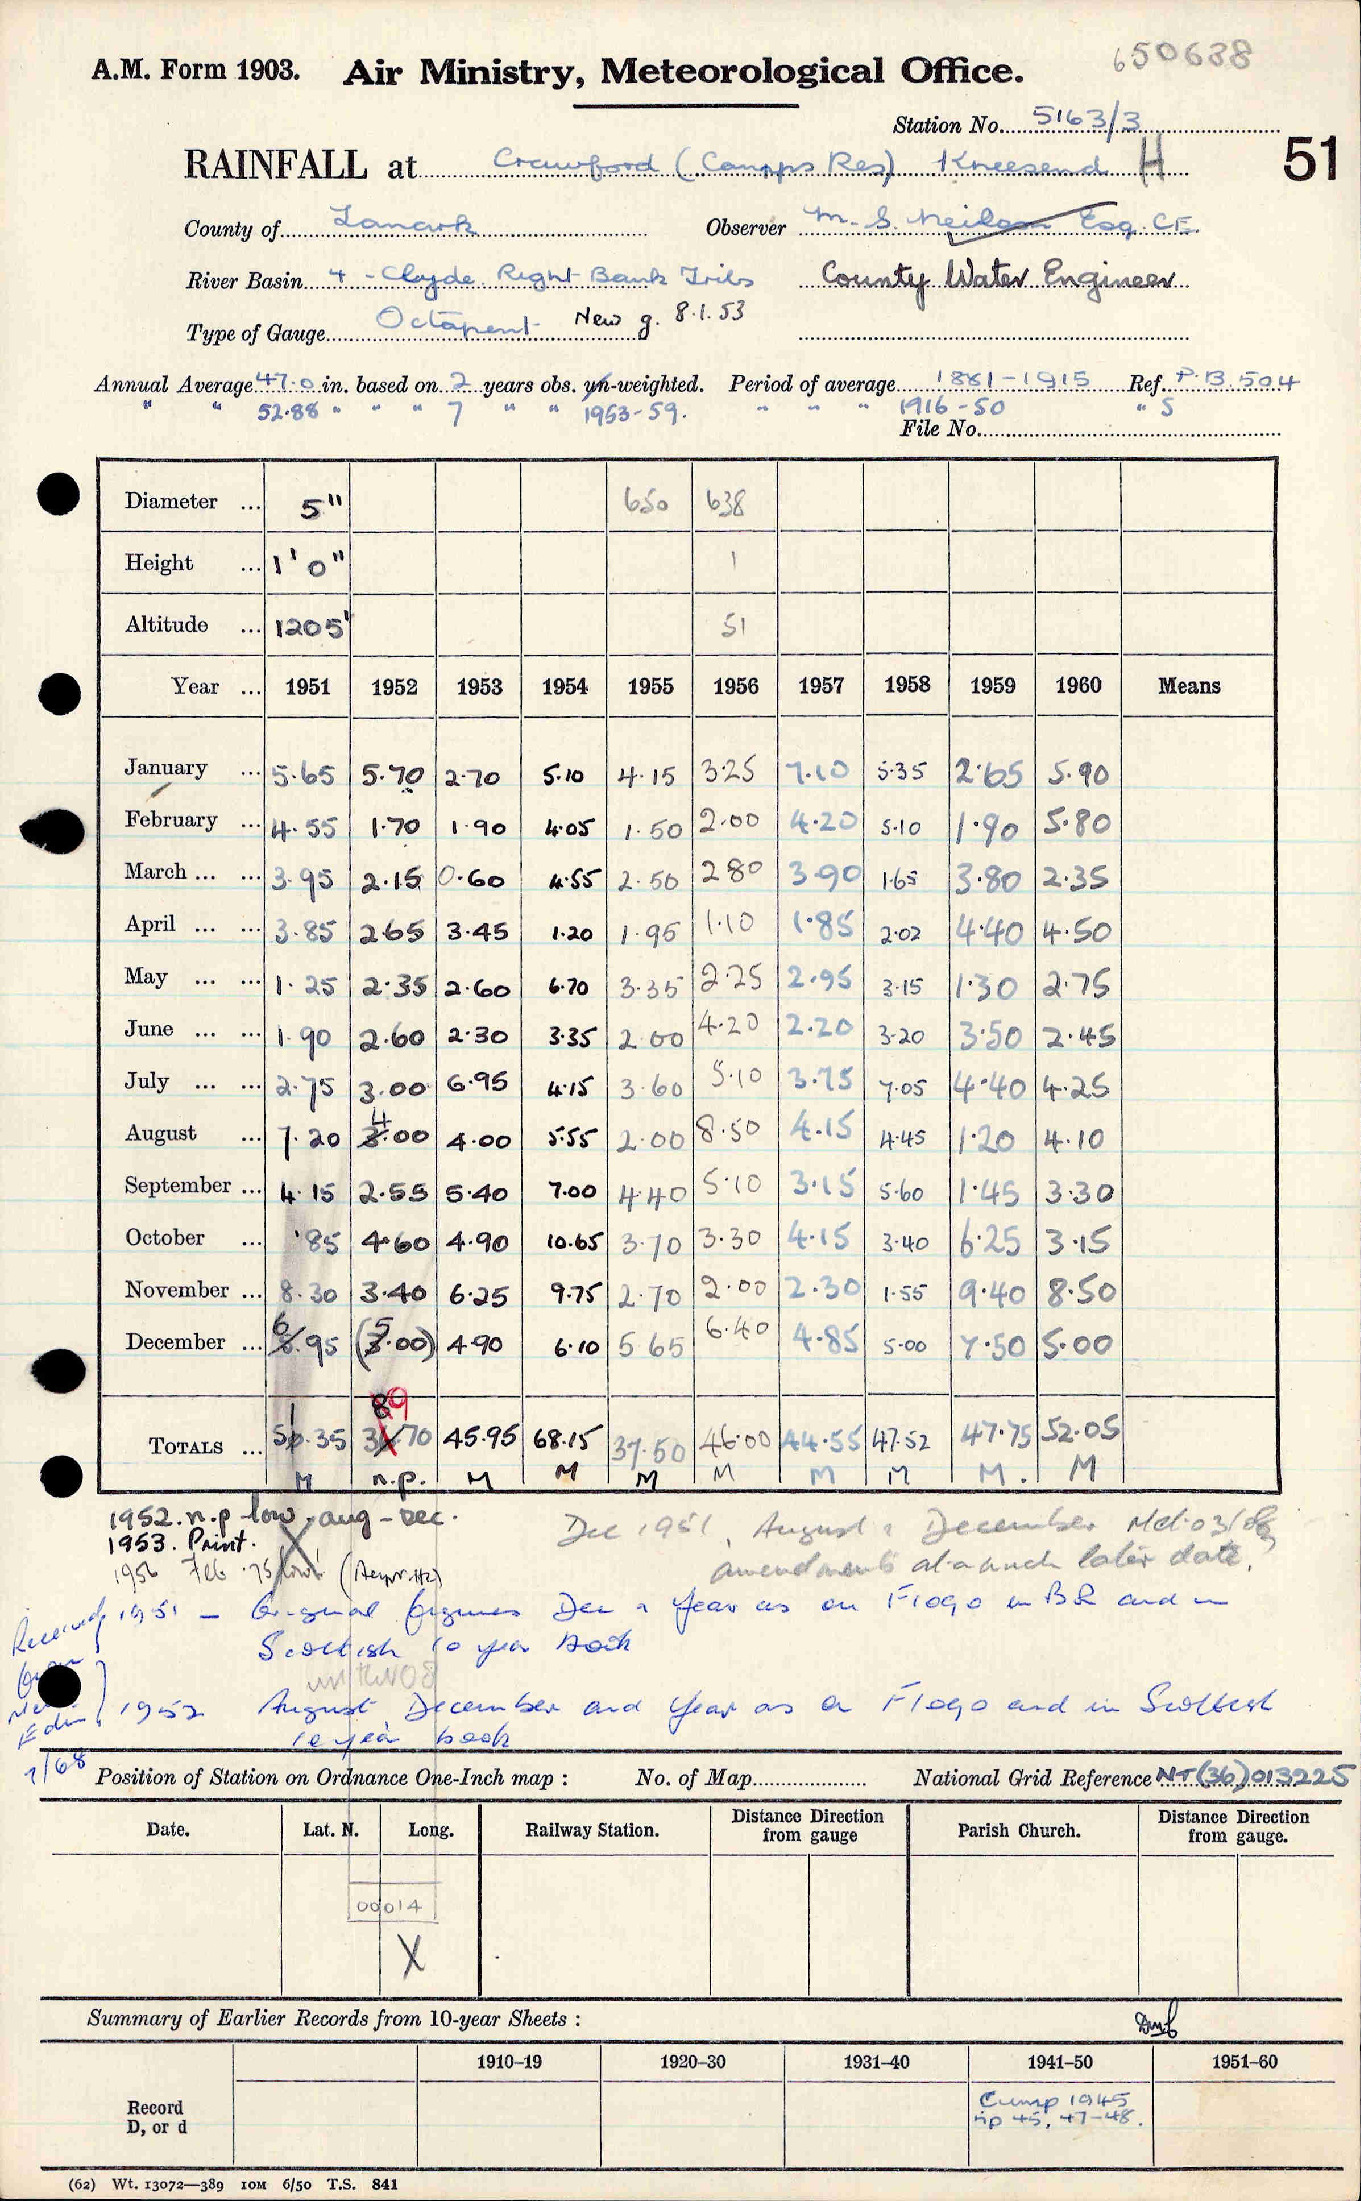 650638
A.M. Form 1903. Air Ministry, Meteorological Office.
Station No. 5163/3
RAINFALL at Crawford (Camps Res) Kneesend H 51
County of Lanark Observer M. S. Neilson Esq. C.E.
River Basin 4 - Clyde Right Bank Tribs County Water Engineer
Type of Gauge Octapent New g. 8.1.53
Annual Average 47.0 in. based on 2 years obs. un-weighted. Period of average 1881-1915 Ref. P.B. 504
" " 52.88 " " " 7 " " 1953-59. " " " 1916-50 " S
File No.
Diameter ... 5" 650 638
Height ... 1' 0" 1
Altitude ... 1205' 51
Year ... 1951 1952 1953 1954 1955 1956 1957 1958 1959 1960 Means
January ... 5.65 5.70 2.70 5.10 4.15 3.25 7.10 5.35 2.65 5.90
February ... 4.55 1.70 1.90 4.05 1.50 2.00 4.20 5.10 1.90 5.80
March ... ... 3.95 2.15 0.60 4.55 2.50 2.80 3.90 1.65 3.80 2.35
April ... ... 3.85 2.65 3.45 1.20 1.95 1.10 1.85 2.02 4.40 4.50
May ... ... 1.25 2.35 2.60 6.70 3.35 2.25 2.95 3.15 1.30 2.75
June ... ... 1.90 2.60 2.30 3.35 2.00 4.20 2.20 3.20 3.50 2.45
July ... ... 2.75 3.00 6.95 4.15 3.60 5.10 3.75 7.05 4.40 4.25
August ... 7.20 4.00 4.00 5.55 2.00 8.50 4.15 4.45 1.20 4.10
September ... 4.15 2.55 5.40 7.00 4.40 5.10 3.15 5.60 1.45 3.30
October ... .85 4.60 4.90 10.65 3.70 3.30 4.15 3.40 6.25 3.15
November ... 8.30 3.40 6.25 9.75 2.70 2.00 2.30 1.55 9.40 8.50
December ... 6.95 (5.00) 4.90 6.10 5.65 6.40 4.85 5.00 7.50 5.00
89
TOTALS ... 51.35 3 .70 45.95 68.15 37.50 46.00 44.55 47.52 47.75 52.05
M n.p. M M M M M M M. M
1952. n.p low, aug - Dec.
1953. Print.
1956 Feb .75 low
Dec 1951, August & December Met.O3/
amendments at a much later date.
1951 - Original figures Dec & Year as on F1090 in BR and in
Scottish 10 year book
Received
from
Edin
7/68
1952 August December and Year as on F1090 and in Scottish
10 year book
Position of Station on Ordnance One-Inch map : No. of Map National Grid Reference NT (36) 013225
Date. Lat. N. Long. Railway Station. Distance from gauge Direction Parish Church. Distance from gauge. Direction
00014
X
Summary of Earlier Records from 10-year Sheets :
1910-19 1920-30 1931-40 1941-50 1951-60
Record
D, or d
Comp 1945
np 45, 47-48.
(62) Wt. 13072—389 10M 6/50 T.S. 841